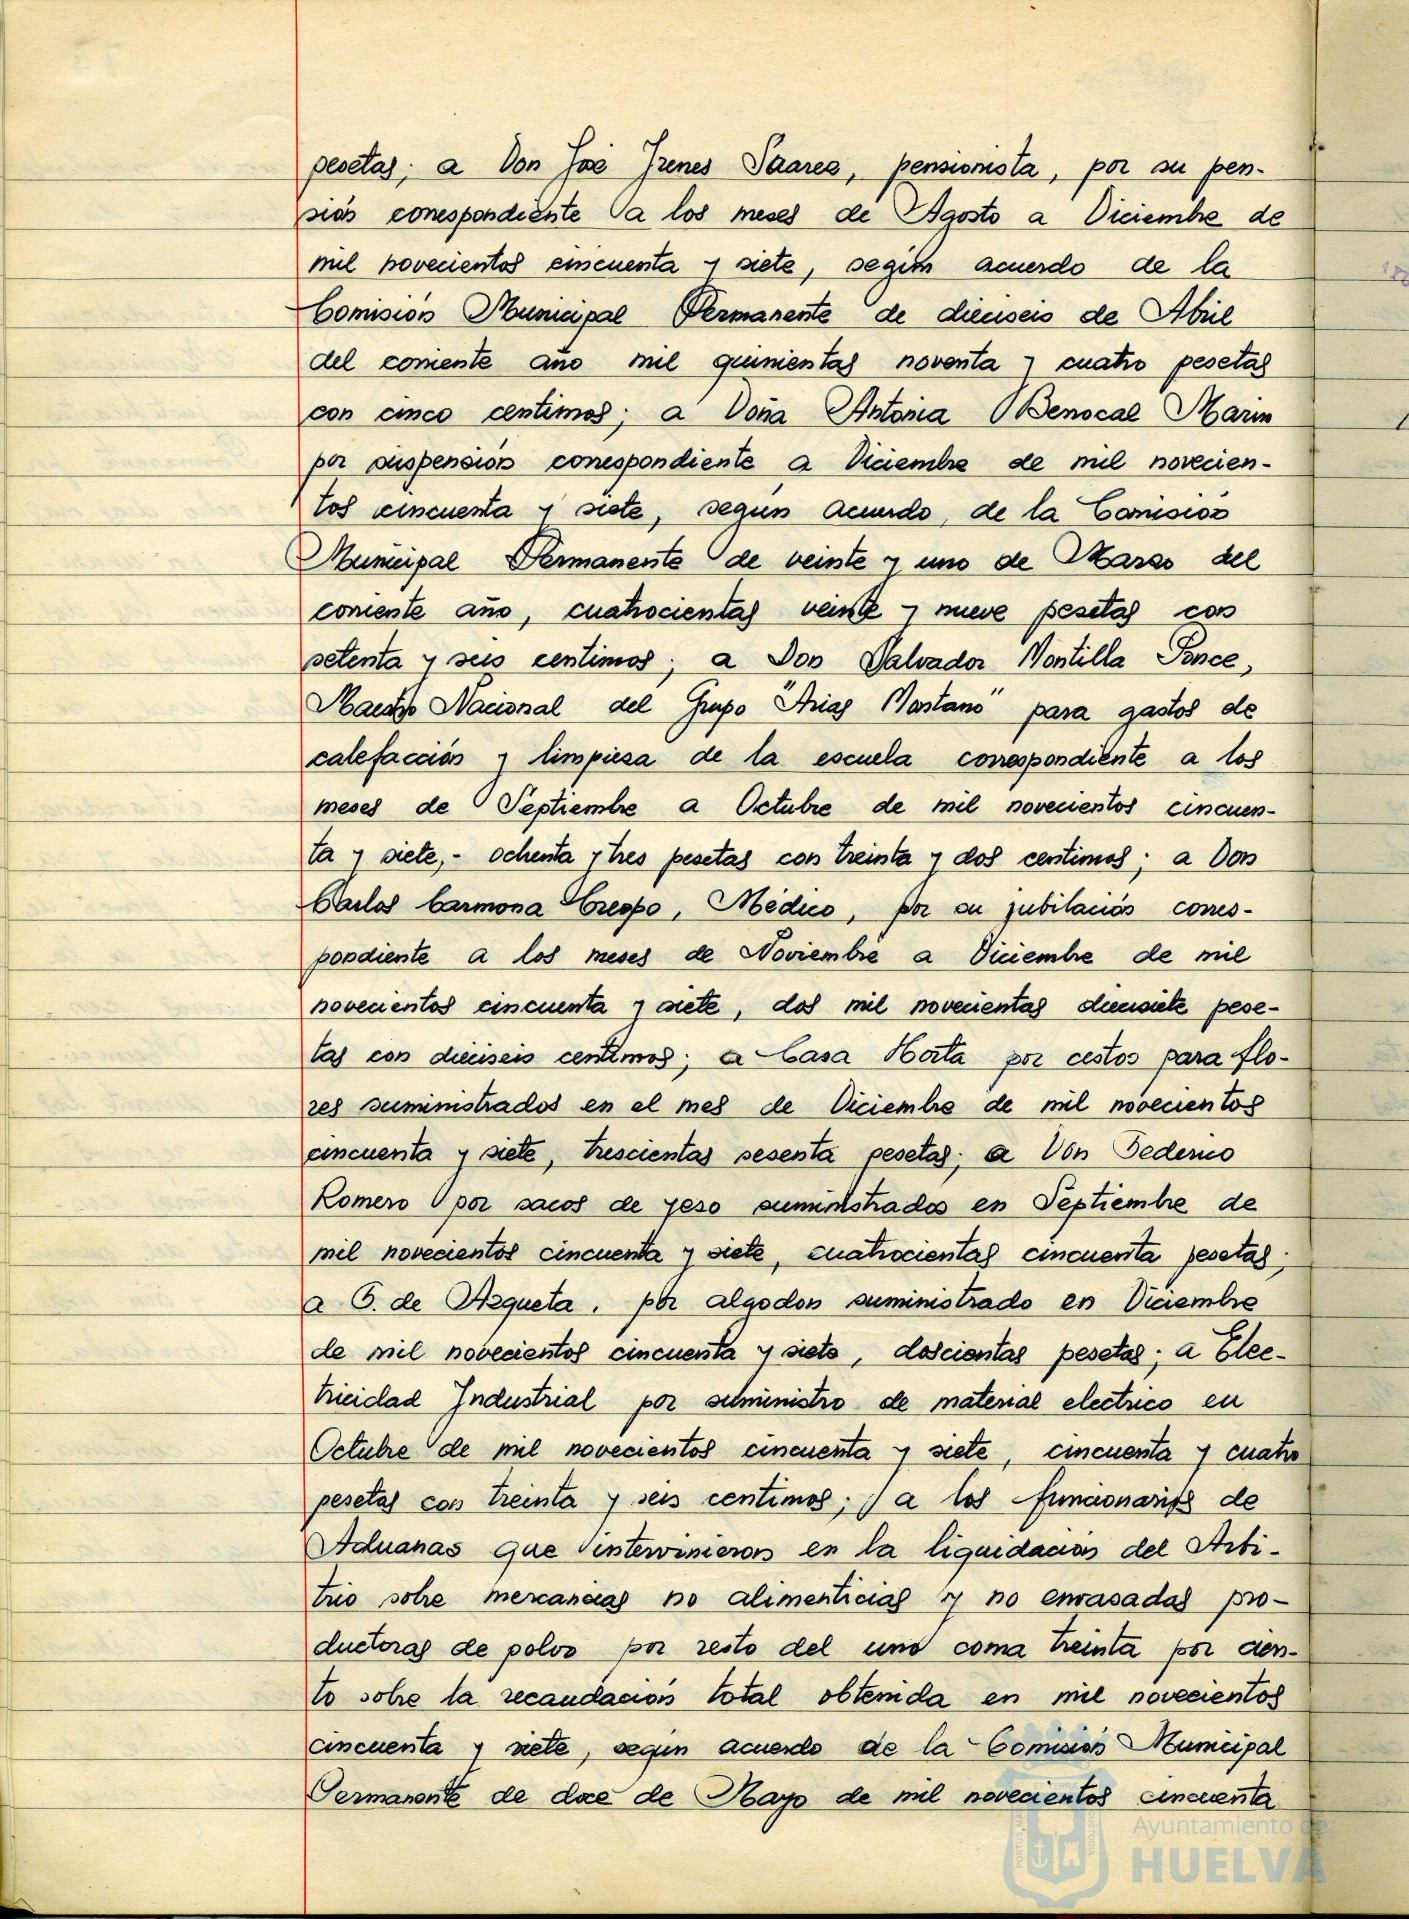 pesetas; a Don José Irenes Saarea, pensionista, por su pen-
sión correspondiente a los meses de Agosto a Diciembre de
mil novecientos cincuenta y siete, según acuerdo de la
Comisión Municipal Permanente de dieciseis de Abril
del corriente año mil quinientas noventa y cuatro pesetas
con cinco centimos; a Doña Antonia Benocal Marin
por suspensión correspondiente a Diciembre de mil novecien-
tos cincuenta y siete, segun acuerdo, de la Comisión
Municipal Permanente de veinte y uno de Marzo del
corriente año, cuatrocientas veinte y nueve pesetas con
setenta y seis centimos; a Don Salvador Montilla Ponce,
Maestro Nacional del Grupo "Arias Montano" para gastos de
calefacción y limpieza de la escuela correspondiente a los
meses de Septiembre a Octubre de mil novecientos cincuen-
ta y siete,- ochenta y tres pesetas con treinta y dos centimos; a Don
Carlos Carmona Crespo, Médico, por su jubilación corres-
pondiente a los meses de Noviembre a Diciembre de mil
novecientos cincuenta y siete, dos mil novecientas diecisiete pese-
tas con dieciseis centimos; a Casa Horta por cestos para flo-
res suministrados en el mes de Diciembre de mil novecientos
cincuenta y siete, trescientas sesenta pesetas; a Don Federico
Romero por sacos de yeso suministrados en Septiembre de
mil novecientos cincuenta y siete, cuatrocientas cincuenta pesetas;
a G. de Azqueta, por algodon suministrado en Diciembre
de mil novecientos cincuenta y siete, doscientas pesetas; a Elec-
tricidad Industrial por suministro de material electrico en
Octubre de mil novecientos cincuenta y siete, cincuenta y cuatro
pesetas con treinta y seis centimos; a los funcionarios de
Aduanas que intervinieron en la liquidación del Arbi-
trio sobre mercancias no alimenticias y no envasadas pro-
ductoras de polvo por resto del uno coma treinta por cien-
to sobre la recaudación total obtenida en mil novecientos
cincuenta y siete, según acuerdo de la Comisión Municipal
Permanente de doce de Mayo de mil novecientos cincuenta
Ayuntamiento de
HUELVA